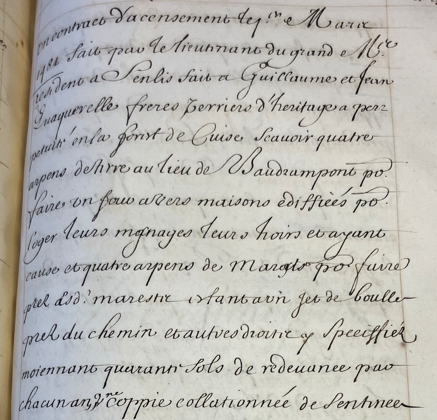 un contract d'acensement le p.er e Mars
1482 fait par le lieutnant du grand e M.re
resident a Senlis fait a Guillaume et Jean
Quaquerelle freres verriers d'heritage a per
petuité en la forest de Cuise scavoir quatre
arpens de terre au lieu de Baudrampont po.
faire un four a vers maisons ediffiées po.
loger leurs mesnages leurs hoirs et ayant
cause et quatre arpens de Marais po. faire
prez aud. marestz estant a un jet de boulle
prez du chemin et autres droitz y speciffiez
moiennant quarante sols de redevance par
chacun an coppie collationnée de sentence